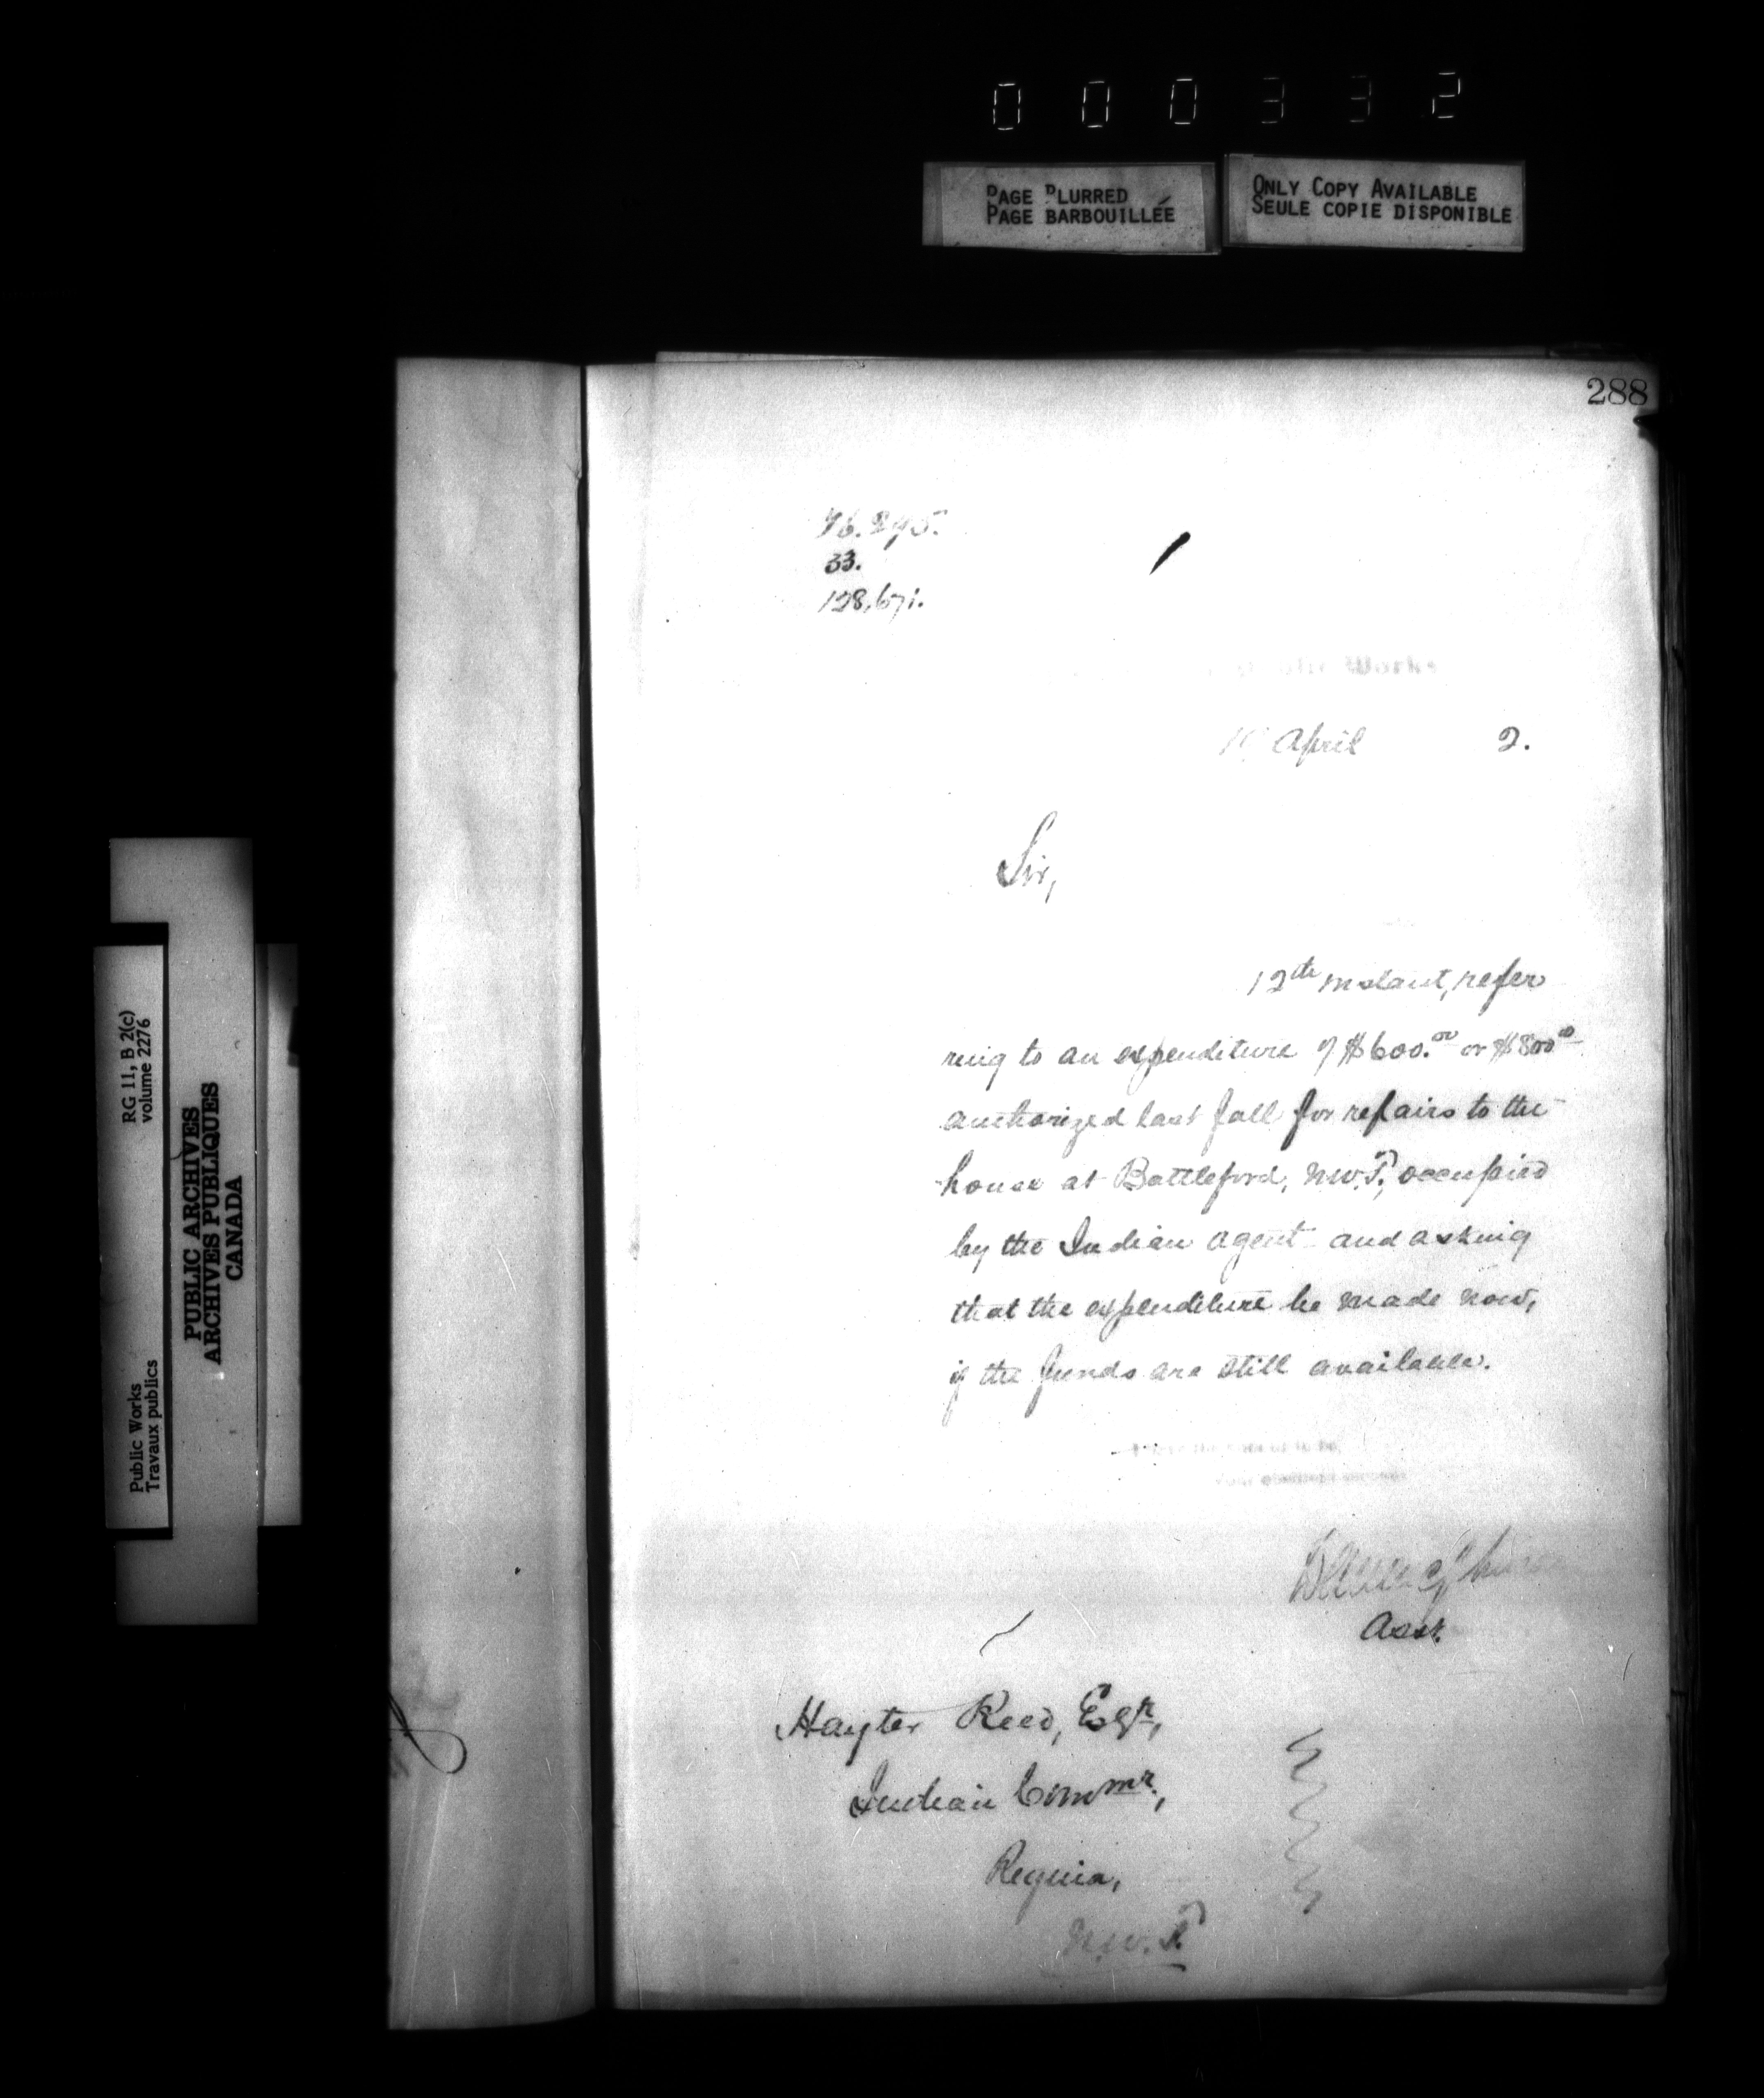 000332
PAGE BLURRED
PAGE BARBOUILLÉE
ONLY COPY AVAILABLE
SEULE COPIE DISPONIBLE
288
33.
128,671.
Works
April 2.
Sir,
12th instant, refer
ring to an expenditure of $600.00 or $800.00
authorized last fall for repairs to the
house at Battleford, N.W.T., occupied
by the Indian agent and asking
that the expenditure be made now,
if the funds are still available.
Asst.
Hayter Reed, Esqr,
Indian Commr.,
Regina,
N.W.T.
RG 11, B 2(c)
volume 2276
Public Works
Travaux publics
PUBLIC ARCHIVES
ARCHIVES PUBLIQUES
CANADA